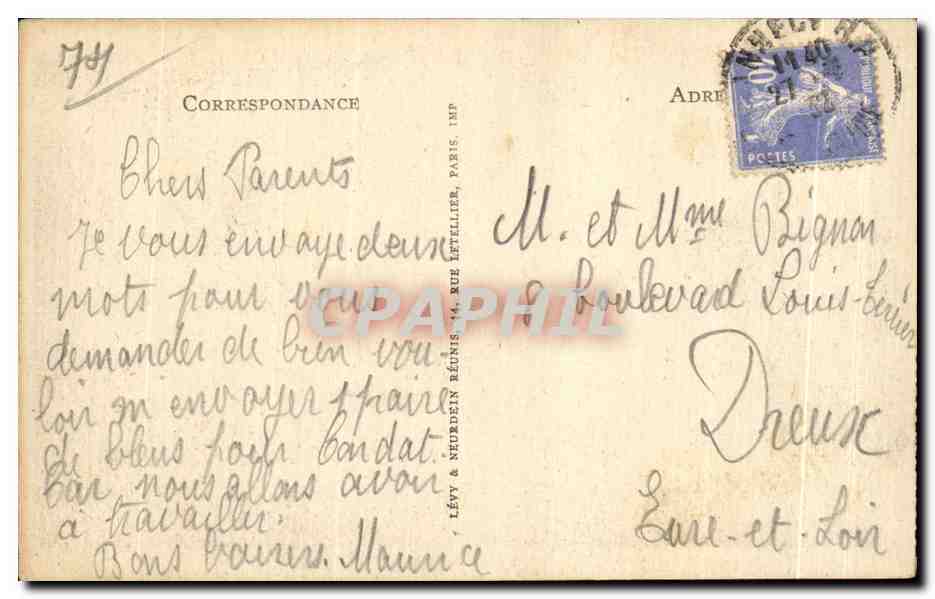 74
CORRESPONDANCE
Chers Parents
Je vous envoye deux
mots pour vous
demander de bien vou-
loir m envoyer 1 paire
de bleus pour
Car nous allons avoir
à travailler.
Bons baisers. Maurice
LÉVY & NEURDEIN RÉUNIS, 44, RUE LETELLIER, PARIS. IMP
ADRE
POSTES
M. et Mme Bignon
9 boulevard Louis-
Dreux
Eure-et-Loir
CPAPHIL